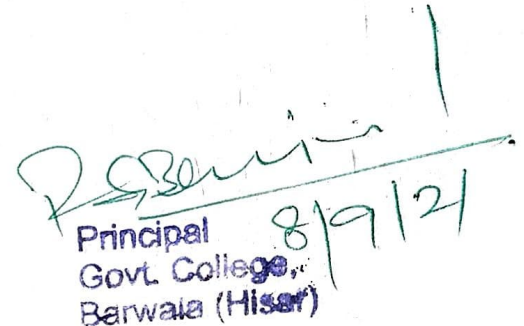 8/9/21
Principal
Govt. College,
Barwala (Hisar)